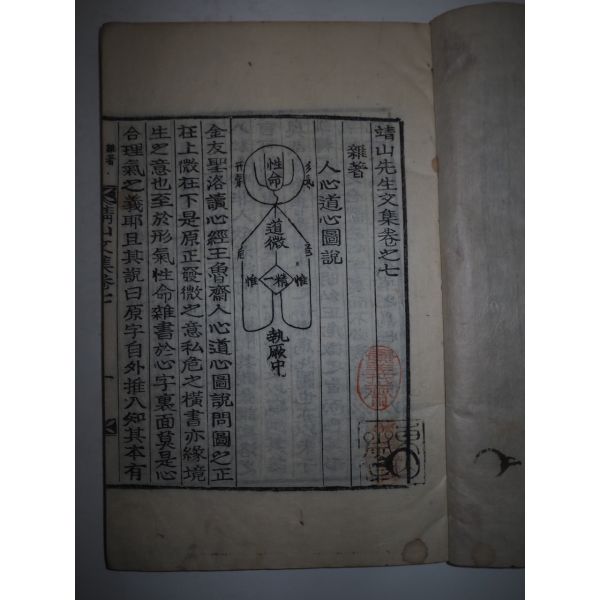 靖山先生文集卷之七
雜著
人心道心圖說
形氣
性命
形氣
道微
惟精一惟
執厥中
金友聖洛讀心經王魯齋人心道心圖說問圖之正
在上微在下是原正發微之意私危之橫書亦緣境
生之意也至於形氣性命雜書於心字裏面莫是心
合理氣之義耶且其說曰原字自外推入知其本有
雜著
靖山文集卷七
一